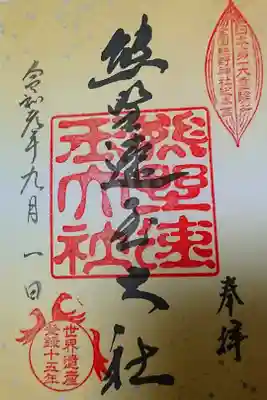 日本第一大霊験所
全国熊野神社総本宮
奉拝
熊野速玉大社
熊野速
玉大社
令和元年九月一日
世界遺産
登録十五年